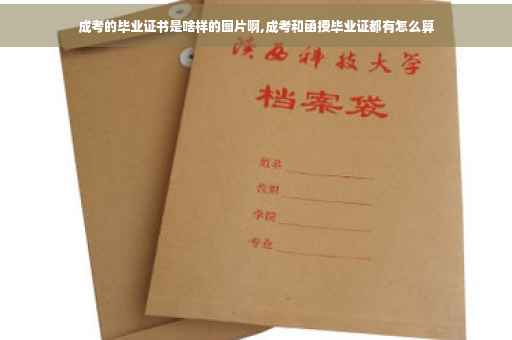 成考的毕业证书是啥样的图片啊,成考和函授毕业证都有怎么算
陕西科技大学
档案袋
姓名
学院
专业